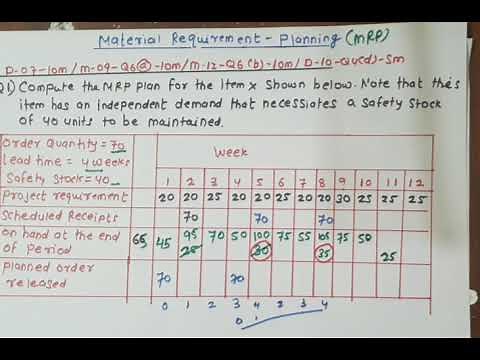 Material Requirement - Planning (MRP)
D-07-10m / m-09-Q6(a)-10m / m-12-Q6 (b)-10m / D-10-Q4(d)-5m
Q1) Compute the MRP plan for the Item x shown below. Note that this
item has an independent demand that necessiates a safety stock
of 40 units to be maintained.
Order Quantity = 70
Lead time = 4 weeks
Safety Stock = 40
Week
1 2 3 4 5 6 7 8 9 10 11 12
Project requirement 20 20 25 20 20 25 20 20 30 25 25 25
Scheduled Receipts 70 70 70
on hand at the end of Period 65 45 95 70 50 100 75 55 105 75 50
25 30 35 25
Planned order released 70 70
0 1 2 3 4 2 3 4
0 1